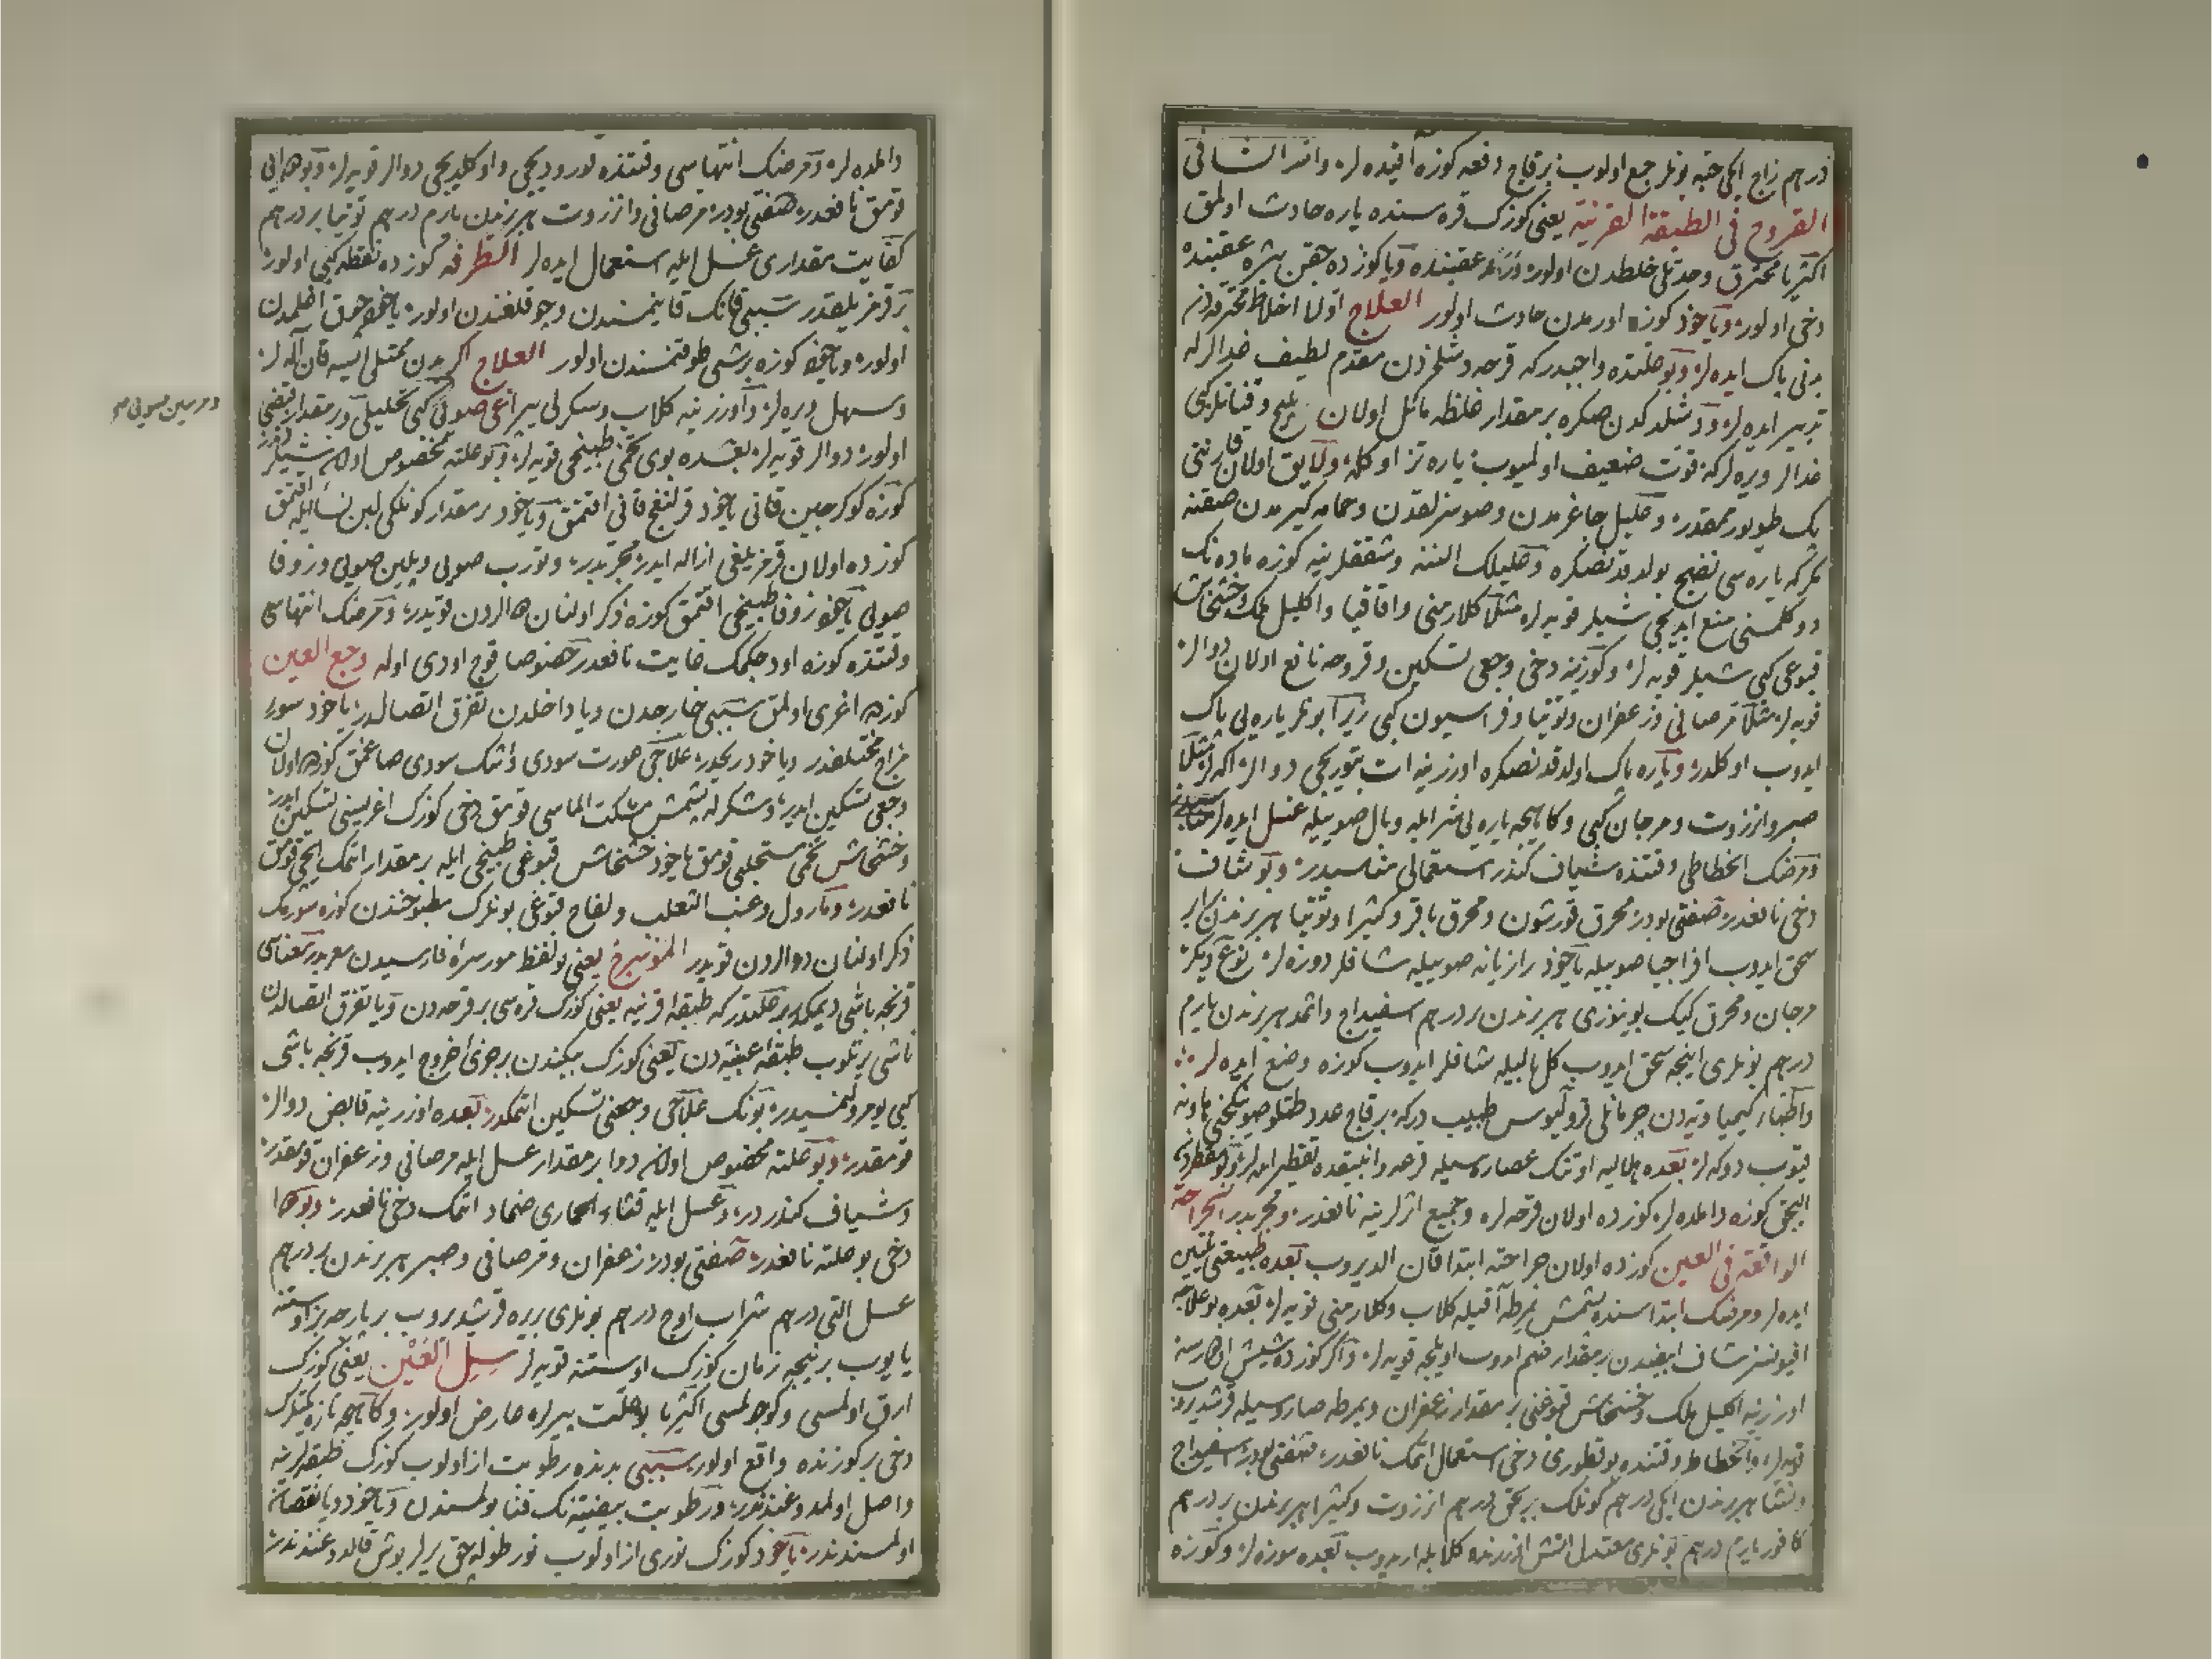 درهم زاج ایکی حبه بونلر جمع اولوب برقاچ دفعه کوزه آقیده لر والله الشافی
القروح فی الطبقة القرنیة یعنی کوزک قره سنده یاره حادث اولمق
اکثریا محترق وحدتلی خلطدن اولور عقبنده ویا کوزده چقن بثره عقبنده
دخی اولور ویاخود کوزه اورمدن حادث اولور العلاج اولا اخلاط محترقه دن
بدنی پاک ایده لر وبو علتده واجبدر که قرحه دشلمزدن مقدم لطیف غدالرله
تدبیر ایده لر ودشلدکدن صکره بر مقدار غلظه مائل اولان
غدالر ویره لر که قوت ضعیف اولمیوب یاره تز اوکله ولایق اولان قارننی
پک طیویورممقدر وعلیل چاغرمدن وصوسزلقدن وحمامه کیرمدن صقنه
مکر که یاره سی نضج بولدقدنصکره وعلیلک النه وشقاقلرینه کوزه ماده نک
دوکلمسنی منع ایدیجی شیلر قویه لر مثلا کل ارمنی واقاقیا واکلیل ملک وخشخاش
قبوغی کبی شیلر قویه لر وکوزینه دخی وجعی تسکین وقروحه نافع اولان دوالر
قویه لر مثلا مرصافی وزعفران وتوتیا وفراسیون کبی زیرا بونلر یاره یی پاک
ایدوب اوکلدر ویاره پاک اولدقدنصکره اوزرینه ات بتوریجی دوالر اکه لر مثلا
صبر وانزروت ومرجان کبی وکاهیجه یاره یی شرابله وبال صوییله غسل ایده لر
ومرضک انحطاطی وقتنده شیاف کندر استعمالی مناسبدر وبو شیاف
دخی نافعدر صفتی بودر محرق قورشون ومحرق باقر وکثیرا وتوتیا هر برندن بر
سحق ایدوب افراجیا صوییله یاخود رازیانه صوییله شافلر دوزه لر نوع دیکر
مرجان ومحرق کیک بوینوزی هر برندن بر درهم اسفیداج واثمد هر برندن یارم
درهم بونلری اینجه سحق ایدوب کل یابیله شافلر ایدوب کوزه وضع ایده لر
واطباء کیمیاویه دن جرمانلی قرولیوس طبیب درکه برقاچ عدد طتلو صو ینکجنی هاونه
قیوب دوکه لر بعده اوتنک عصاره سیله قرعه وانبیقده تقطیر ایده لر وبو مقطردن
الیجق کوزه داملده لر کوزده اولان قرحه لره وجمیع اثرلرینه نافعدر ومجربدر الجراحة
الواقعة فی العین کوزده اولان جراحته ابتدا قان الدیروب بعده طبیعتی تلیین
ایده لر ومرضک ابتداسنده بشمش یمرطه آقیله کلاب وکل ارمنی قویه لر بعده بو علاجه
افیونسز شاف ابیضدن بر مقدار ضم ایدوب اویلجه قویه لر واکر کوزده شیش اولورسه
اوزرینه اکلیل ملک وخشخاش قبوغنی بر مقدار زعفران ویمرطه صاروسیله قرشدروب
قویه لر وانحطاط وقتنده بو قطوری دخی استعمال اتمک نافعدر صفتی بودر اسفیداج
ونشا هر برندن ایکی درهم کونلک بر بچق درهم انزروت وکثیرا هر برندن بر درهم
کافور یارم درهم بونلری معتدل اتش اوزرنده کلابله اریدوب بعده سوزه لر وکوزه
داملده لر ومرضک انتهاسی وقتنده تورودیجی واوکلدیجی دوالر قویه لر وبو دوایی
قومق نافعدر صفتی بودر مرصافی وانزروت هر برندن یارم درهم توتیا بر درهم
کفایت مقداری عسل ایله استعمال ایده لر الطرفه کوزده نقطه کبی اولور
بر قزمزیلقدر سببی قانک قاینمسندن وچوقلغندن اولور یاخود چوق اغلمدن
اولور ویاخود کوزه برشی طوقنمسندن اولور العلاج اکر بدن ممتلی ایسه قان آله لر
ومسهل ویره لر واوزرینه کلاب وسکرلی بیراغی صویی کبی تحلیلی وبر مقدار قبضی
ومرسین صویی صح
اولور دوالر قویه لر بعده بوی تخمی طبیخی قویه لر وبو علته مخصوص اولان شیلردندر
کوزه کوکرجین قانی یاخود قرلنغج قانی اقتمق ویاخود بر مقدار کونلکی لبن نسا ایله اقتمق
کوزده اولان قزمزیلغی ازاله ایدر مجربدر وتورب صویی وپلین صویی وزوفا
صویی یاخود زوفا طبیخی اقتمق کوزه ذکر اولنان دوالردن قویدر ومرضک انتهاسی
وقتنده کوزه اود چکمک غایت نافعدر خصوصا قوچ اودی اوله وجع العین
کوزده اغری اولمق سببی خارجدن ویا داخلدن تفرق اتصالدر یاخود سوء
مزاج مختلفدر ویاخود ریحدر علاجی عورت سودی واشک سودی صاغمق کوزده اولان
وجعی تسکین ایدر وشکرله بشمش مسکت الماسی قومق دخی کوزک اغریسنی تسکین ایدر
وخشخاش تخمی مستحلبی قومق یاخود خشخاش قبوغی طبیخی ایله بر مقدار اتمک ایچی قومق
نافعدر ومارول وعنب الثعلب ولفاح قبوغی بونلرک مطبوخندن کوزه سورمک
ذکر اولنان دوالردن قویدر المورسرج یعنی بو لفظ مورسره فارسیدن معربدر معناسی
قرنجه باشی دیمکدر بر علتدر که طبقهٔ قرنیه یعنی کوزک قره سی بر قرحه دن ویا تفرق اتصالدن
ناشی یرتلوب طبقهٔ عنبیه دن یعنی کوزک ببکندن بر جزئی خروج ایدوب قرنجه باشی
کبی یومرولنمسیدر بونک علاجی وجعنی تسکین اتمکدر بعده اوزرینه قابض دوالر
قومقدر وبو علته مخصوص اولان دوا بر مقدار عسل ایله مرصافی وزعفران قومقدر
وشیاف کندر در وعسل ایله قثاء الحماری ضماد اتمک دخی نافعدر وبو دوا
دخی بو علته نافعدر صفتی بودر زعفران ومرصافی وصبر هر برندن بر درهم
عسل التی درهم شراب اوچ درهم بونلری بریره قرشدیروب بر پارچه بز اوستنه
یایوب برنیجه زمان کوزک اوستنه قویه لر سل العین یعنی کوزک
ارق اولمسی وکوچلمسی اکثریا بو علت پیرلره عارض اولور وکاهیجه تازه یکتلرک
دخی بر کوزنده واقع اولور سببی بدنده رطوبت از اولوب کوزک طبقه لرینه
واصل اولمدوغندندر ورطوبت بیضیه نک فنا بولمسندن ویاخود ویا نقصان
اولمسندندر یاخود کوزک نوری از اولوب نور طوله جق یرلر بوش قالدوغندندر